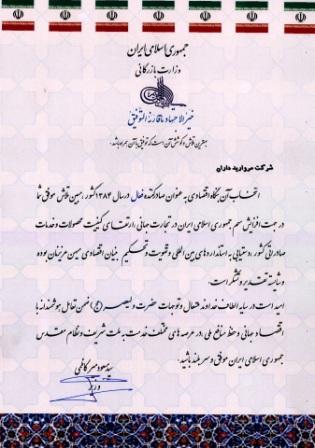 جمهوری اسلامی ایران
وزارت بازرگانی
خیر الاجتهاد ماقارنه التوفیق
بهترین تلاش و کوشش آن است که توفیق با آن همراه باشد.
شرکت مروارید داران
انتخاب آن بنگاه اقتصادی به عنوان صادرکننده فعال در سال ۱۳۸۴ کشور، مبین تلاش موفقی شما
در جهت افزایش سهم جمهوری اسلامی ایران در تجارت جهانی، ارتقای کیفیت محصولات و خدمات
صادراتی کشور، دستیابی به استانداردهای بین المللی و تقویت و تحکیم بنیان اقتصادی میهن عزیزمان بوده
و شایسته تقدیر و تشکر است.
امید است در سایه الطاف خداوند متعال و توجهات حضرت ولیعصر (عج)، ضمن تعامل هوشمندانه با
اقتصاد جهانی و حفظ منافع ملی، در عرصه های مختلف خدمت به ملت شریف و نظام مقدس
جمهوری اسلامی ایران موفق و سربلند باشید.
سید مسعود میرکاظمی
وزیر